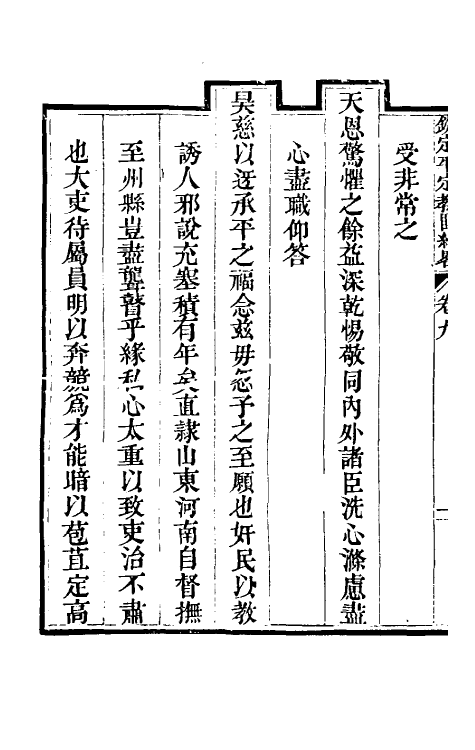 欽定平定教匪紀略 卷九 二
受非常之
天恩驚懼之餘益深乾惕敬同內外諸臣洗心滌慮盡
心盡職仰答
昊慈以迓承平之福念茲毋忽予之至願也奸民以教
誘人邪說充塞積有年矣直隸山東河南自督撫
至州縣豈盡聾瞽乎緣私心太重以致吏治不肅
也大吏待屬員明以奔競為才能暗以苞苴定高